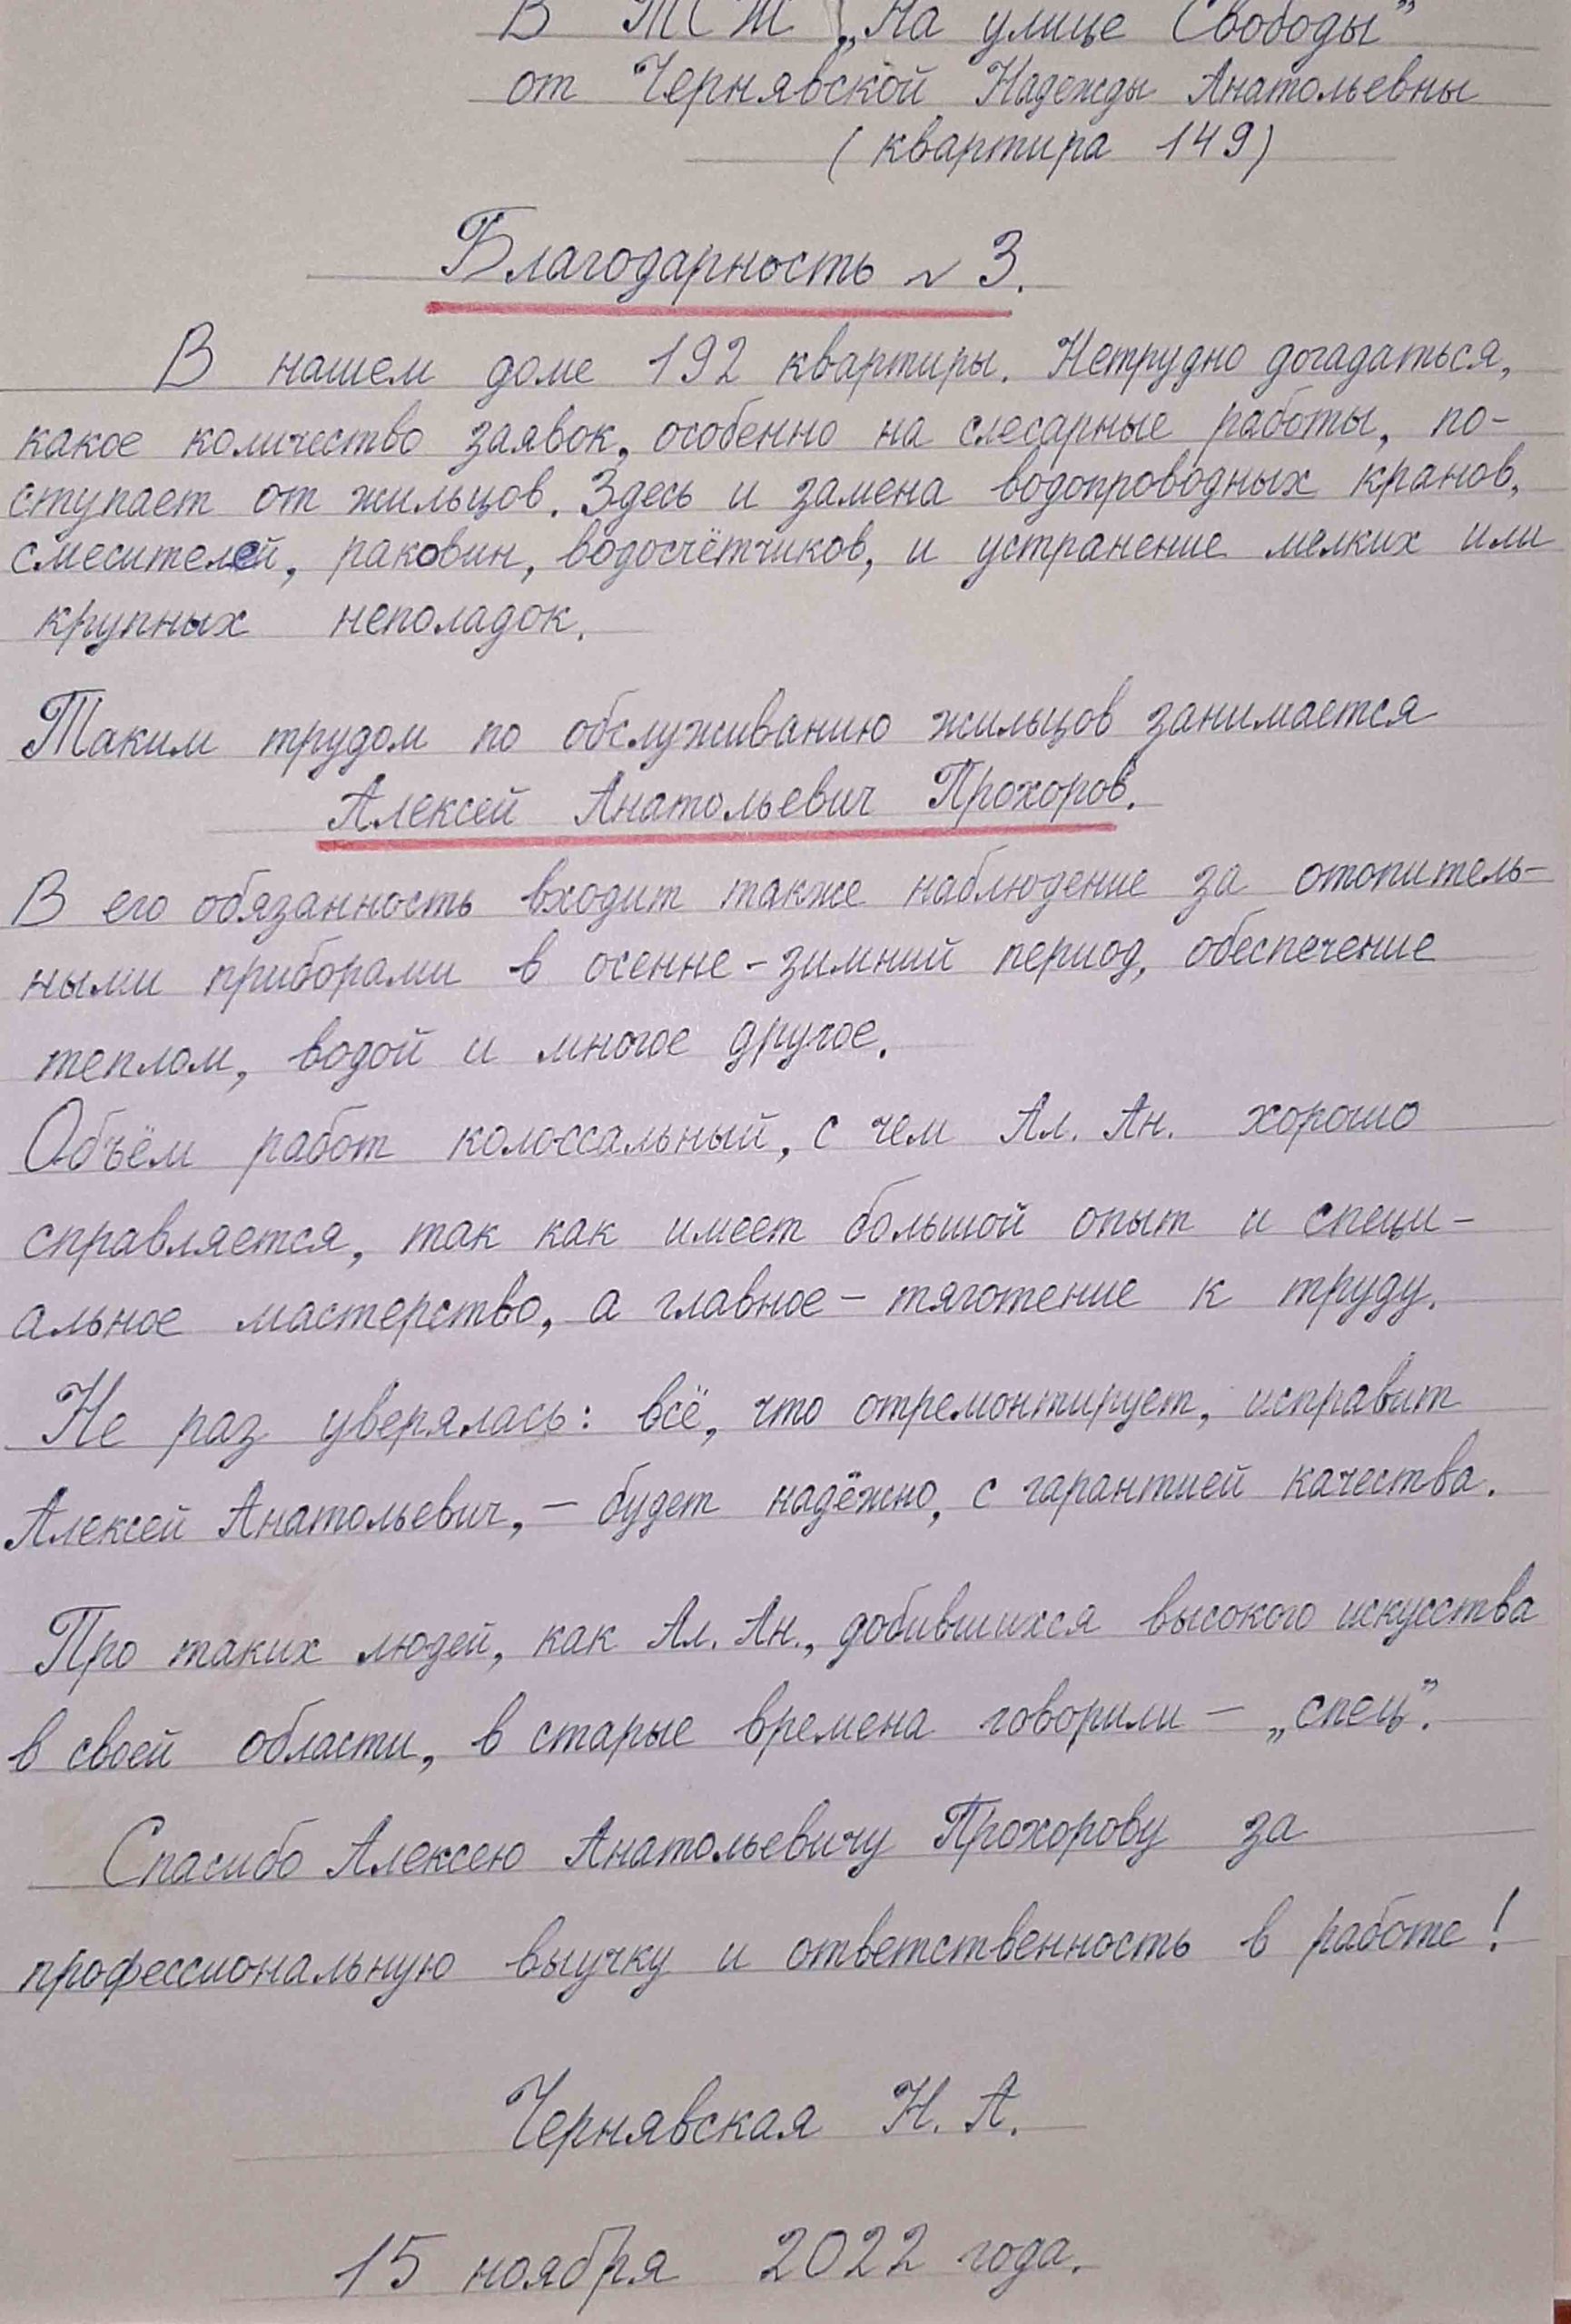 В ТСЖ „На улице Свободы"
от Чернявской Надежды Анатольевны
(квартира 149)
Благодарность № 3.
В нашем доме 192 квартиры. Нетрудно догадаться,
какое количество заявок, особенно на слесарные работы, по-
ступает от жильцов. Здесь и замена водопроводных кранов,
смесителей, раковин, водосчётчиков, и устранение мелких или
крупных неполадок.
Таким трудом по обслуживанию жильцов занимается
Алексей Анатольевич Прохоров.
В его обязанность входит также наблюдение за отопитель-
ными приборами в осенне-зимний период, обеспечение
теплом, водой и многое другое.
Объём работ колоссальный, с чем Ал. Ан. хорошо
справляется, так как имеет большой опыт и специ-
альное мастерство, а главное – тяготение к труду.
Не раз уверялась: всё, что отремонтирует, исправит
Алексей Анатольевич, – будет надёжно, с гарантией качества.
Про таких людей, как Ал. Ан., добившихся высокого искусства
в своей области, в старые времена говорили – „спец".
Спасибо Алексею Анатольевичу Прохорову за
профессиональную выучку и ответственность в работе!
Чернявская Н. А.
15 ноября 2022 года.